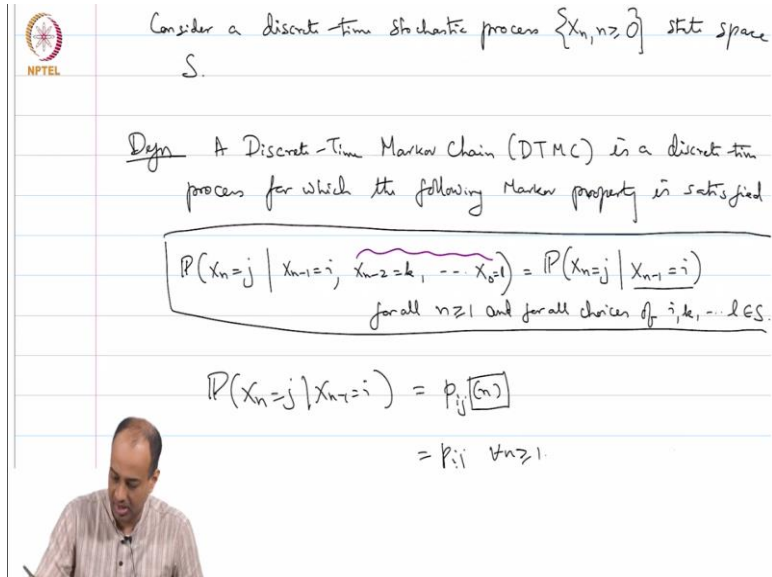 NPTEL
Consider a discrete-time stochastic process {Xn, n≥0} state space
S.
Defn A Discrete-Time Markov Chain (DTMC) is a discrete time
process for which the following Markov property is satisfied
P(Xn=j | Xn-1=i, Xn-2=k, --- X0=l) = P(Xn=j | Xn-1=i)
for all n≥1 and for all choices of i, k, --- l ∈ S.
P(Xn=j | Xn-1=i) = pij (n)
= pij ∀n≥1.